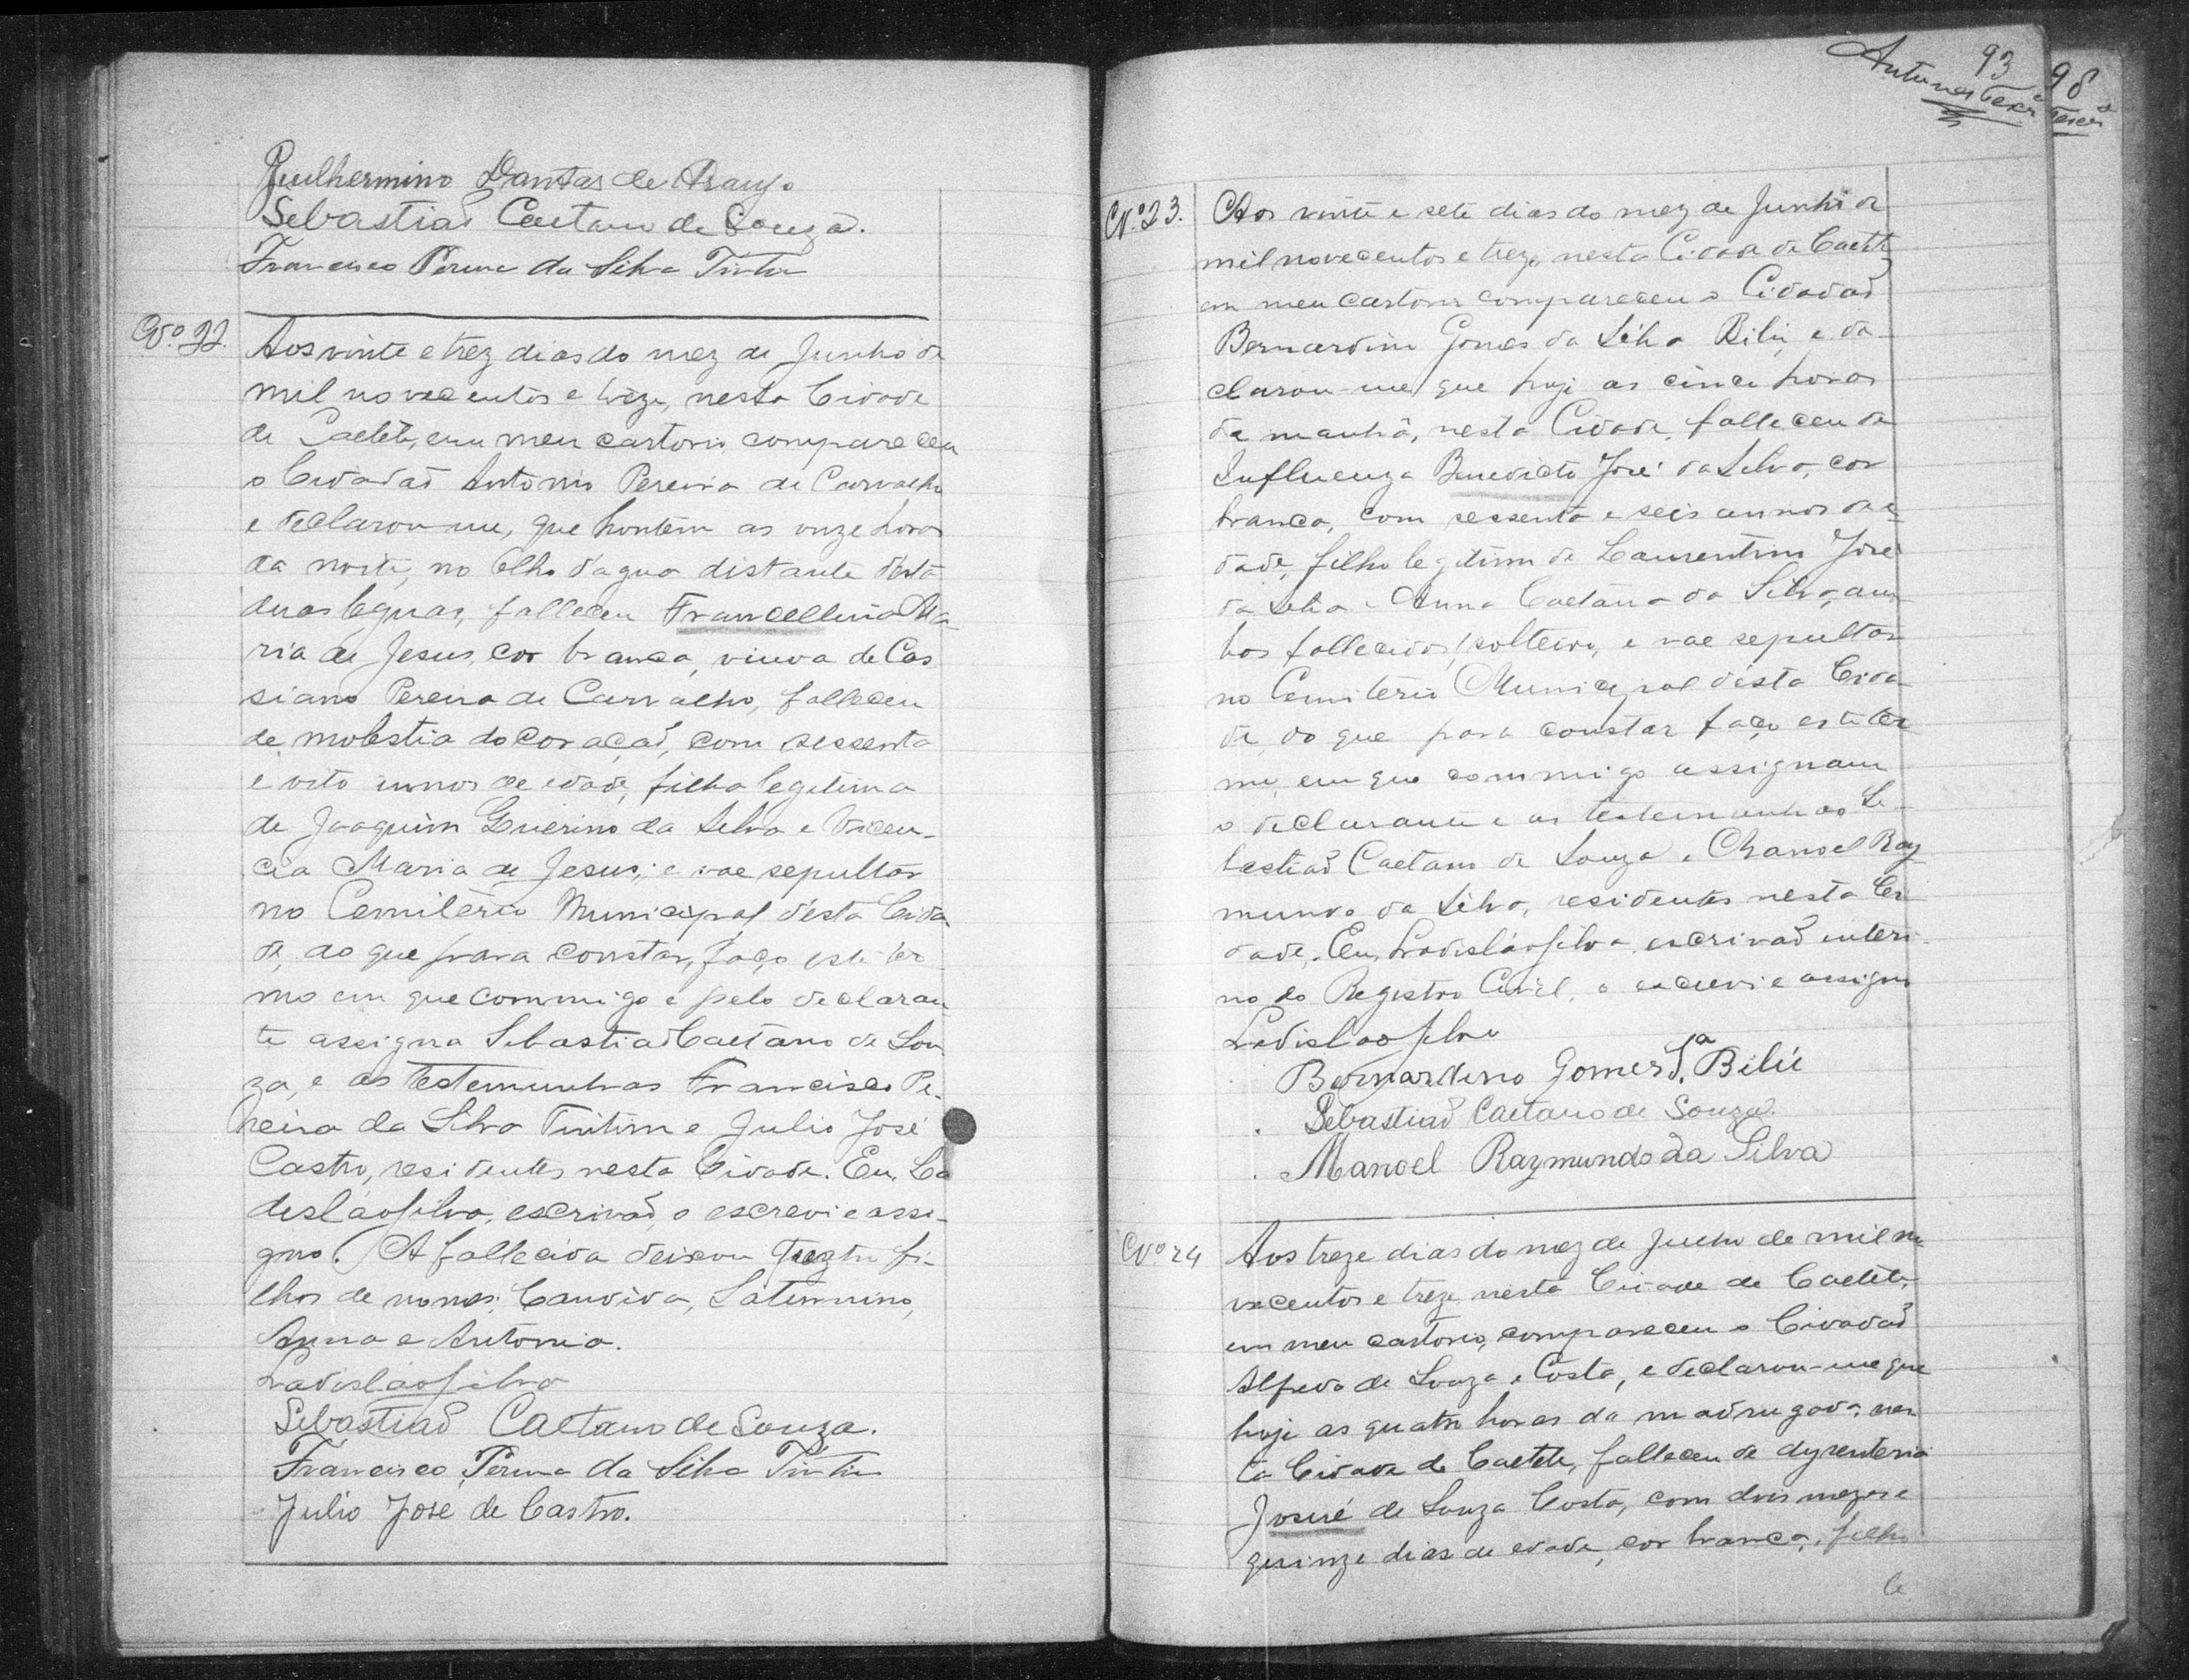 Guilhermino Dantas de Araujo
Sebastiaõ Caetano de Souza.
Francisco Pereira da Silva Tintim
Nº. 22.
Aos vinte e trez dias do mez de Junho de
mil novecentos e treze, nesta Cidade
de Caeteté, em meu cartorio compareceu
o Cidadaõ Antonio Pereira de Carvalho
e declarou-me, que hontem as onze horas
da noite, no Olho d'agua distante d'esta
duas leguas, falleceu Francellina Ma-
ria de Jesus, cor branca, viuva de Cas
siano Pereira de Carvalho, falleceu
de molestia do coraçaõ, com sessenta
e oito annos de edade, filha legitima
de Joaquim Guerino da Silva e Vicen-
cia Maria de Jesus; e vae sepultar
no Cemiterio Municipal d'esta Cida
de, do que para constar, faço este ter
mo em que commigo e pelo declaran
te assigna Sebastiaõ Caetano de Sou
za, e as testemunhas Francisco Pe-
reira da Silva Tintim e Julio José
Castro, residentes nesta Cidade. Eu, La
desláo Silva, escrivaõ, o escrevi e assi-
gno. A fallecida deixou fi-
lhos de nomes: Candida, Saturnino,
Anna e Antonio.
Ladisláo Silva
Sebastiaõ Caetano de Souza.
Francisco Pereira da Silva Tintim
Julio José de Castro.
93
98
Antunes Teixrª
Teixrª
Nº. 23.
Aos vinte e sete dias do mez de Junho de
mil novecentos e treze, nesta Cidade de Caeteté
em meu cartorio compareceu o Cidadaõ
Bernardino Gomes da Silva Bilú, e de-
clarou-me que hoje as cinco horas
da manhã, nesta Cidade, falleceu de
Influenza Benedicto José da Silva, cor
branca, com sessenta e seis annos de e-
dade, filho legitimo de Laurentino José
da Silva e Anna Caetana da Silva, am
bos fallecidos, solteiro, e vae sepultar
no Cemiterio Municipal d'esta Cida
de, do que para constar faço este ter
mo, em que commigo assignam
o declarante e as testemunhas Se-
bastiaõ Caetano de Souza e Manoel Ray
mundo da Silva, residentes nesta Ci
dade. Eu, Ladisláo Silva, escrivaõ interi-
no do Registro Civil, o escrevi e assigno
Ladisláo Silva
Bernardino Gomes Sª. Bilú
Sebastiaõ Caetano de Souza.
Manoel Raymundo da Silva
Nº 24
Aos treze dias do mez de Julho de mil no
vecentos e treze, nesta Cidade de Caeteté,
em meu cartorio, compareceu o Cidadaõ
Alfredo de Souza e Costa, e declarou-me que
hoje as quatro horas da madrugada, nes
ta Cidade de Caeteté, falleceu de dysenteria
Josué de Souza Costa, com dois mezes e
quinze dias de edade, cor branca, filho